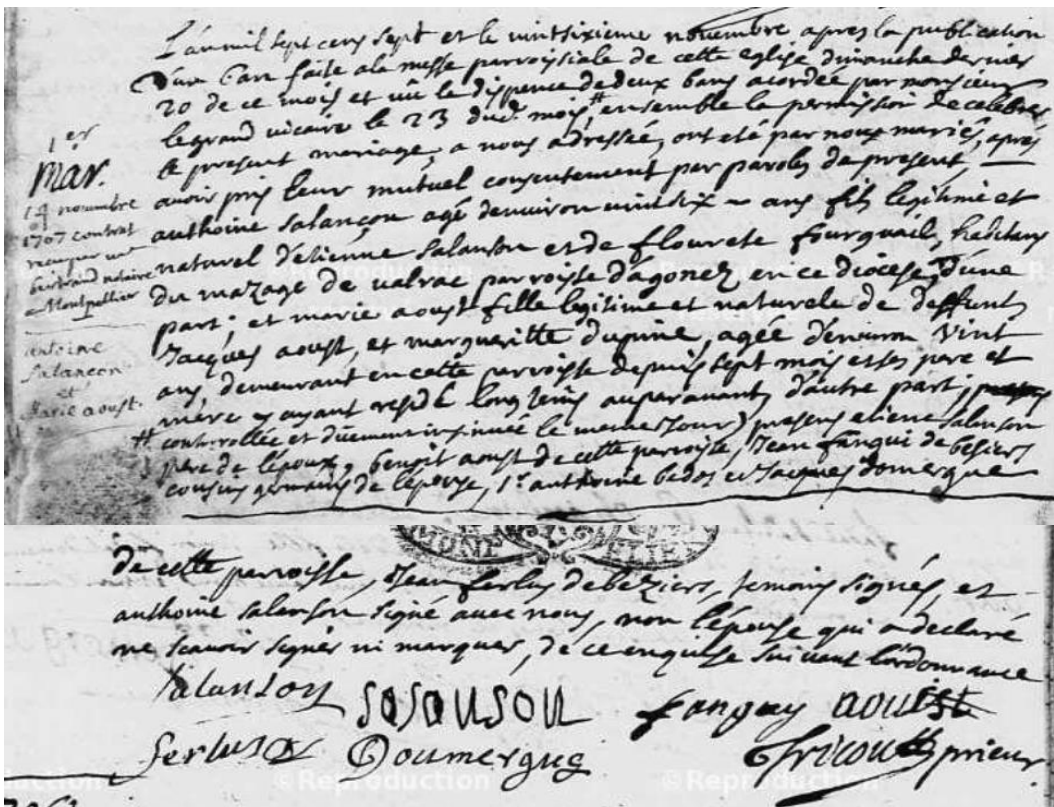 L'an mil sept cens sept et le vintsixieme novembre apres la publication
d'un ban faite a la messe parroissiale de cette eglise dimanche dernier
20 de ce mois et vû le dispence de deux bans acordée par monsieur
le grand vicaire le 23 dud. mois,# ensemble la permission de celebrer
le present mariage, a nous adressée, ont eté par nous mariés, apres
avoir pris leur mutuel consentement par paroles de present,
anthoine salançon agé d'environ vint six ~ ans fils legitime et
naturel d'etienne salanson et de flourete fourquail, habitans
du mazage de valrac parroisse d'agonez en ce diocese, d'une
part; et marie aoust fille legitime et naturele de deffunts
Jacques aoust, et margueritte dupine, agée d'environ vint
ans, demeurant en cette parroisse depuis sept mois et ses pere et
mere y ayant residé long tems auparavant, d'autre part;
# controllée et düement insinuée le meme jour) presens etiene salanson
pere de l'époux, benoit aoust de cette parroisse, Jean fanqui de besiers
cousins germains de l'epouse, sr. anthoine bedos et Jacques domergue
1er
Mar.
14 novembre
1707 contrat
recu par me
bertrand notaire
Montpellier
Antoine
Salancon
et
Marie aoust.
de cette parroisse, Jean ferlus de beziers, temoins signés, et
anthoine salanson signé avec nous, non l'épouse qui a declaré
ne scavoir signer ni marquer, de ce enquise suivant l'ordonnance
Salanson sosouson fanquy aoust
ferlus Doumergue prieur
MONT ELIER
©Reproduction